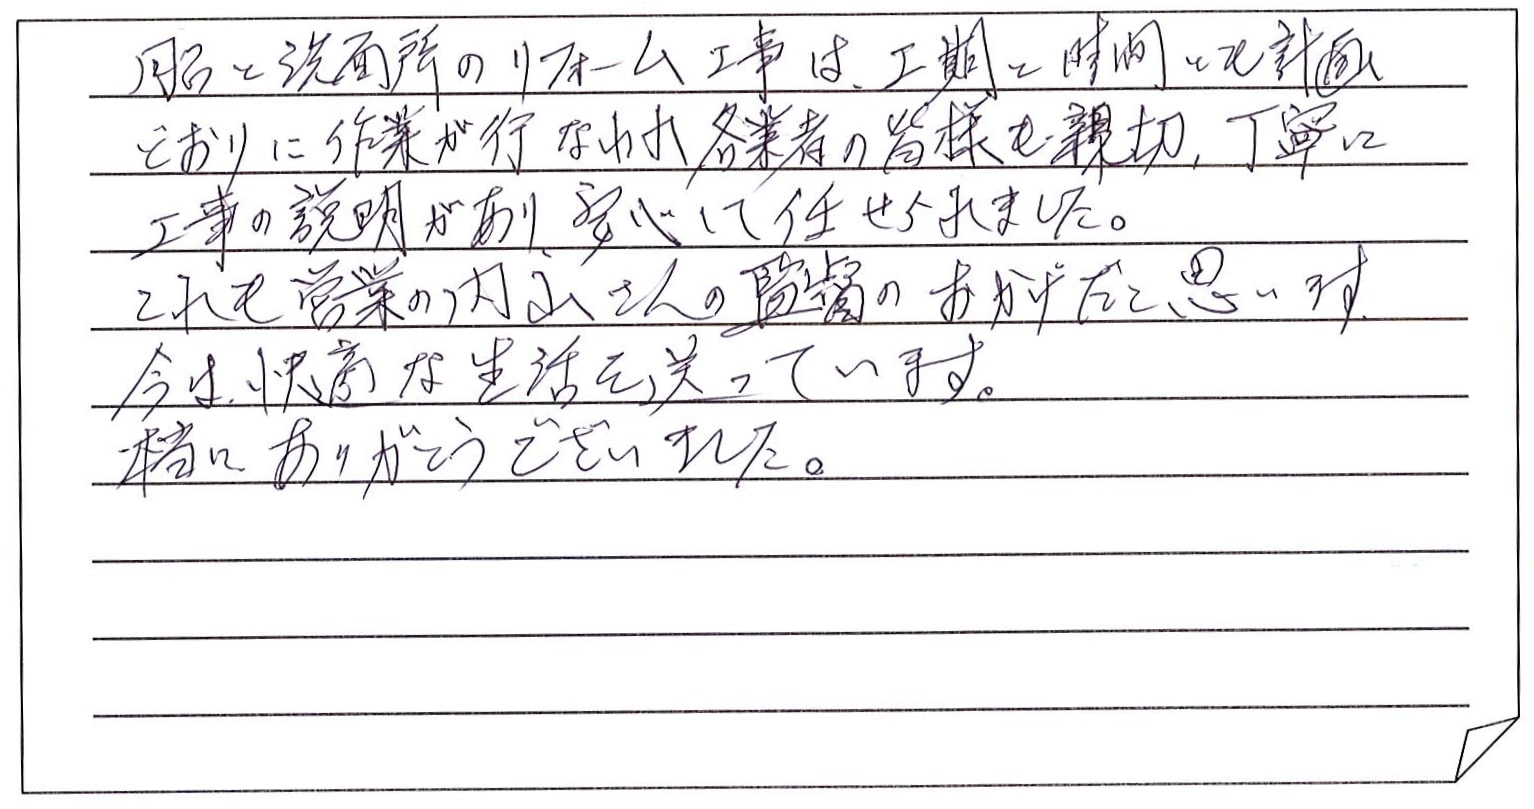 風呂と洗面所のリフォーム工事は、工期と時間とも計画
どおりに作業が行なわれ各業者の皆様も親切、丁寧に
工事の説明があり、安心して任せられました。
これも営業の内山さんの監督のおかげだと思います.
今は、快適な生活を送っています。
本当にありがとうございました。